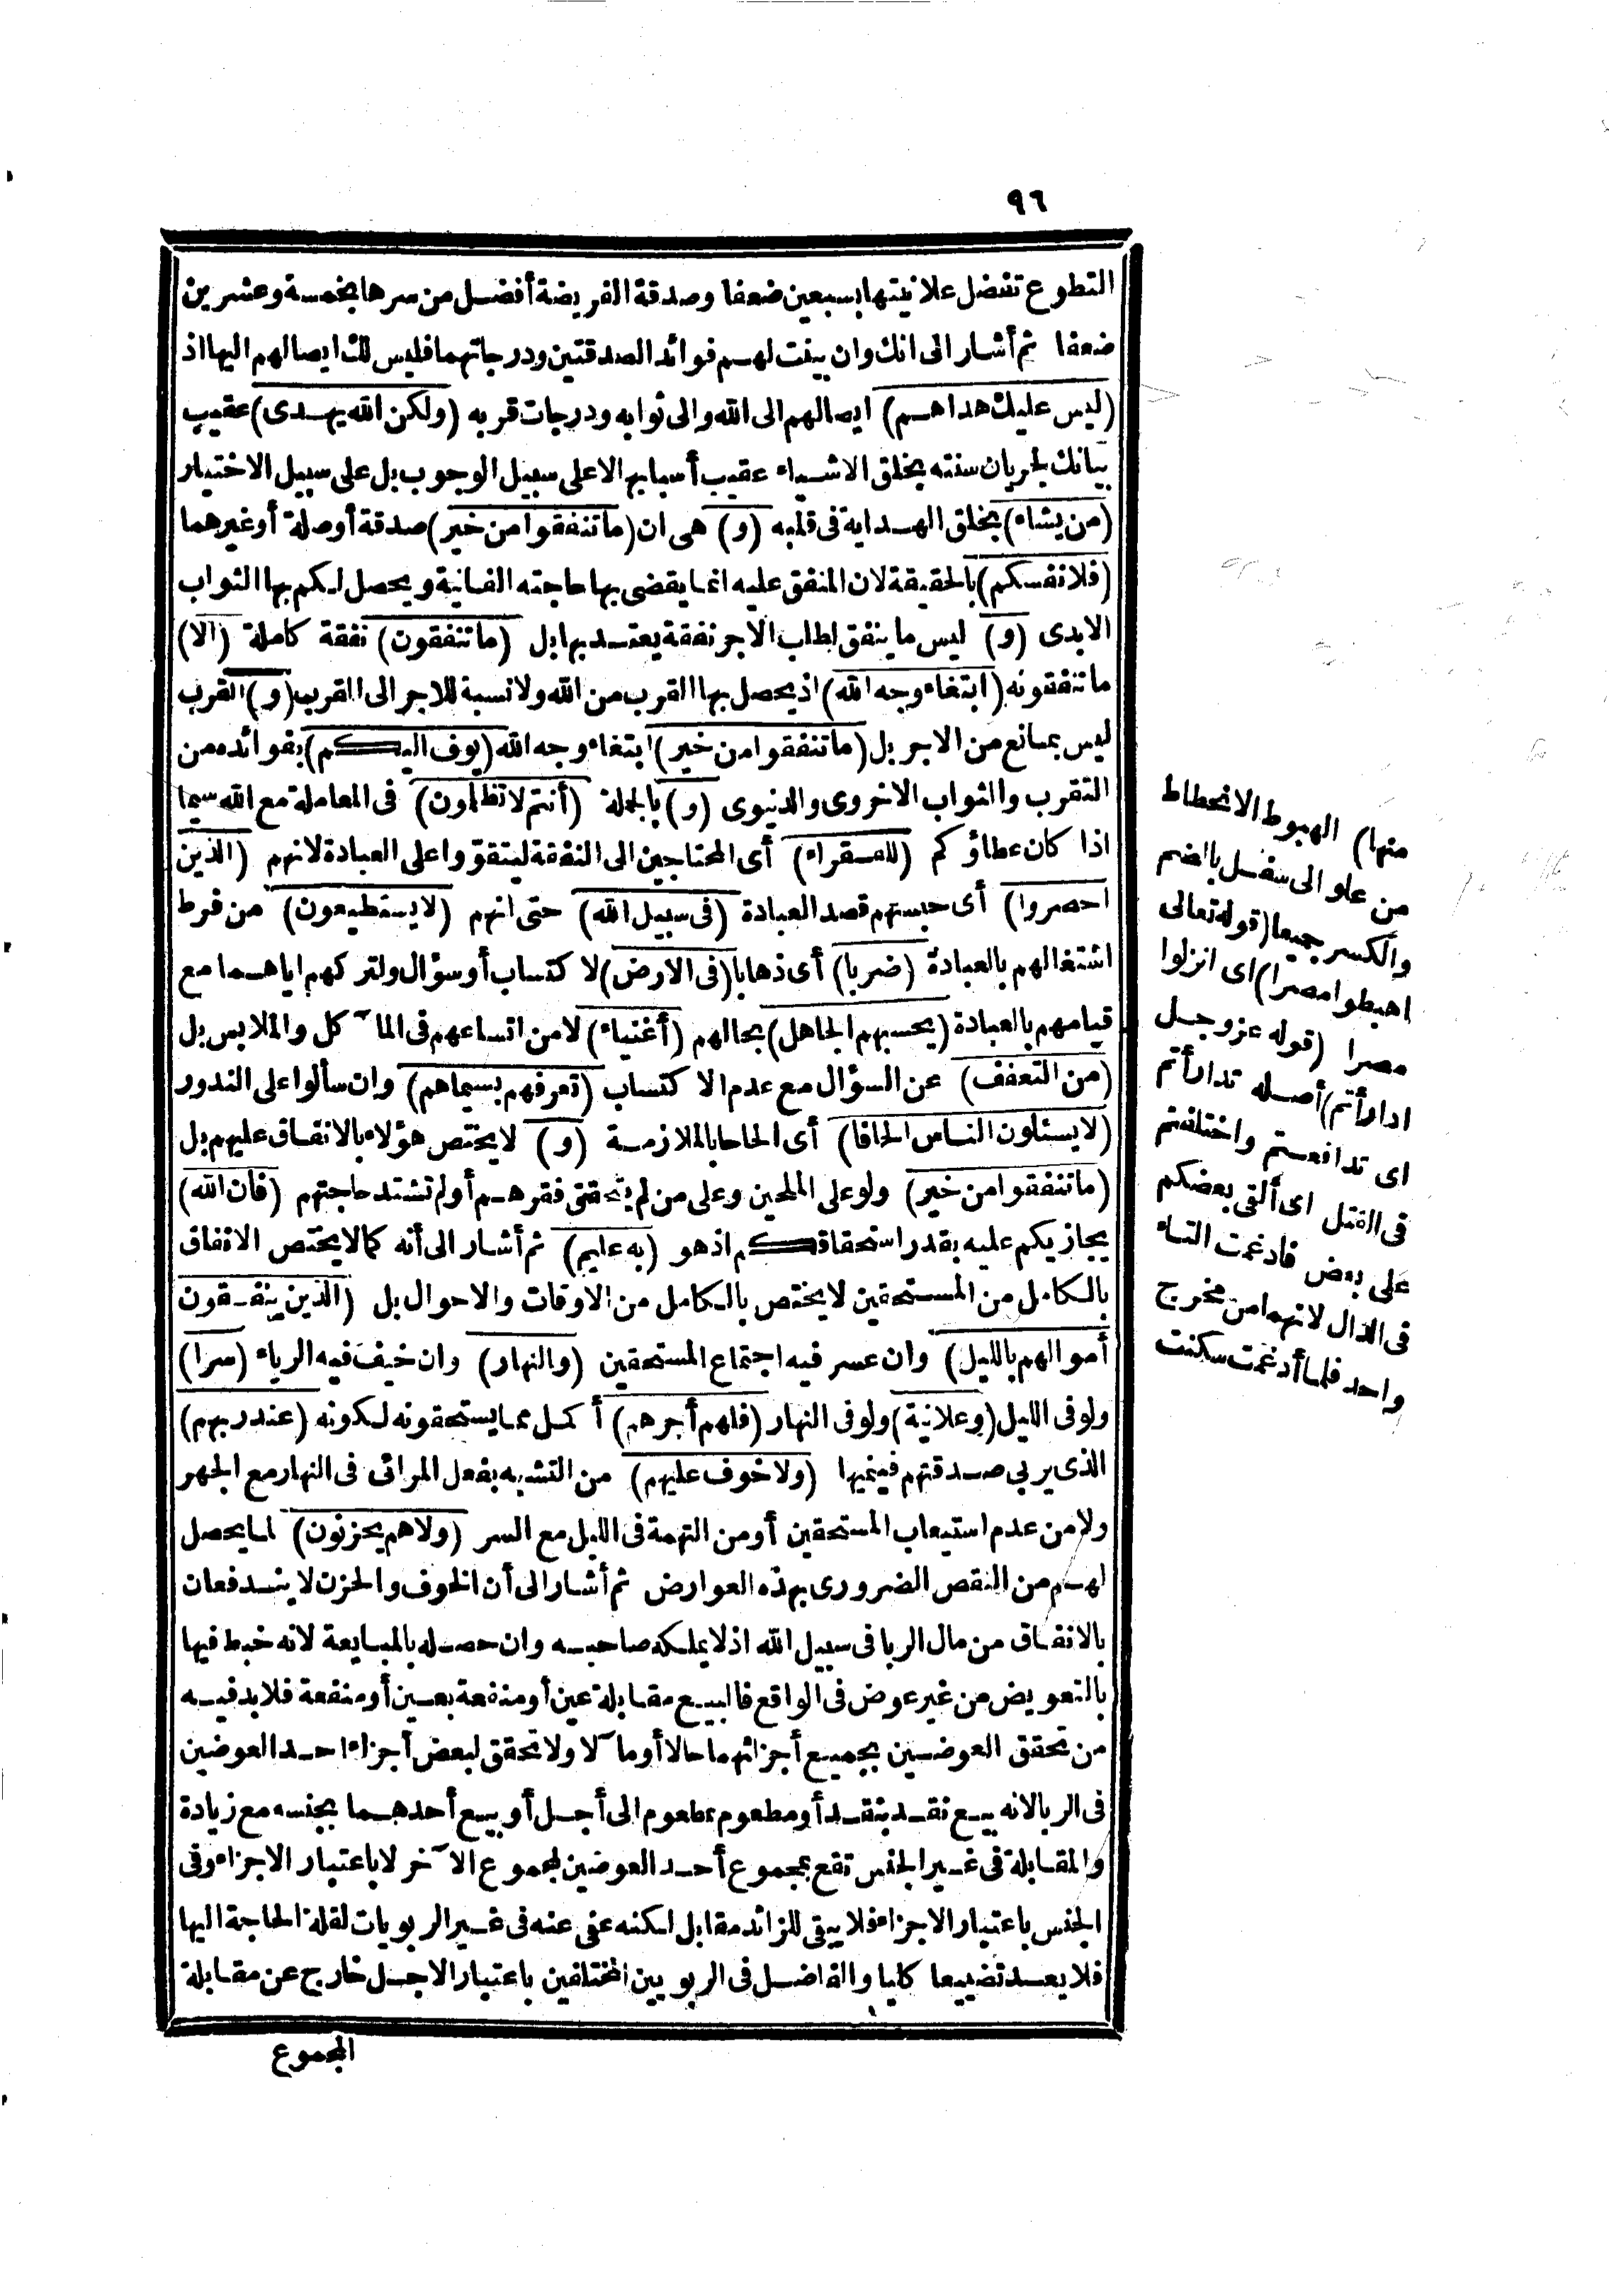 ٩٦
التطوع تفضل علانيتها بسبعين ضعفا وصدقة الفريضة أفضل من سرها بخمسة وعشرين
ضعفا ثم أشار الى انك وان بينت لهم فوائد الصدقتين ودرجاتهما فليس لك ايصالهم اليها اذ
(ليس عليك هداهم) ايصالهم الى الله والى ثوابه ودرجات قربه (ولكن الله يهدى) عقيب
بيانك لجريان سنته بخلق الاشياء عقيب أسبابها لا على سبيل الوجوب بل على سبيل الاختيار
(من يشاء) بخلق الهداية فى قلبه (و) هى ان (ما تنفقوا من خير) صدقة أوصلة أو غيرهما
(فلانفسكم) بالحقيقة لان المنفق عليه انما يقضى بها حاجته الفانية ويحصل لكم بها الثواب
الابدى (و) ليس ما ينفق لطلب الاجر نفقة يعتد بها بل (ما تنفقون) نفقة كاملة (الا)
ما تنفقونه (ابتغاء وجه الله) اذ يحصل بها القرب من الله ولا نسبة للاجر الى القرب (و) القرب
ليس بمانع من الاجر بل (ما تنفقوا من خير) ابتغاء وجه الله (يوف اليكم) بفوائده من
التقرب والثواب الاخروى والدنيوى (و) بالجملة (أنتم لا تظلمون) فى المعاملة مع الله سيما
اذا كان عطاؤكم (للفقراء) أى المحتاجين الى النفقة ليتقووا على العبادة لانهم (الذين
احصروا) أى حبستهم قصد العبادة (فى سبيل الله) حتى انهم (لا يستطيعون) من فرط
اشتغالهم بالعبادة (ضربا) أى ذهابا (فى الارض) لا كتساب أو سؤال ولتركهم اياهما مع
قيامهم بالعبادة (يحسبهم الجاهل) بحالهم (أغنياء) لا من اتساعهم فى المآكل والملابس بل
(من التعفف) عن السؤال مع عدم الاكتساب (تعرفهم بسيماهم) وان سألوا على الندور
(لا يسئلون الناس الحافا) أى الحاحا بالملازمة (و) لا يختص هؤلاء بالانفاق عليهم بل
(ما تنفقوا من خير) ولو على الملحين وعلى من لم يتحقق فقرهم أو لم تشتد حاجتهم (فان الله)
يجازيكم عليه بقدر استحقاقكم اذ هو (به عليم) ثم أشار الى أنه كما لا يختص الانفاق
بالكامل من المستحقين لا يختص بالكامل من الاوقات والاحوال بل (الذين ينفقون
أموالهم بالليل) وان عسر فيه اجتماع المستحقين (والنهار) وان خيف فيه الرياء (سرا)
ولو فى الليل (وعلانية) ولو فى النهار (فلهم أجرهم) أكمل مما يستحقونه لكونه (عند ربهم)
الذى يربى صدقتهم فينميها (ولا خوف عليهم) من التشبه بفعل المرائى فى النهار مع الجهر
ولا من عدم استيعاب المستحقين أو من التهمة فى الليل مع السر (ولاهم يحزنون) لما يحصل
لهم من النقص الضرورى بهذه العوارض ثم أشار الى أن الخوف والحزن لا يندفعان
بالانفاق من مال الربا فى سبيل الله اذ لا يملكه صاحبه وان حصله بالمبايعة لانه خبط فيها
بالتعويض من غير عوض فى الواقع فالبيع مقابلة عين أو منفعة بعين أو منفعة فلابد فيه
من تحقق العوضين بجميع أجزائهما حالا أو مآلا ولا تحقق لبعض أجزاء احد العوضين
فى الربا لانه بيع نقد بنقد أو مطعوم بمطعوم الى أجل أو بيع أحدهما بجنسه مع زيادة
والمقابلة فى غير الجنس تقع بمجموع أحد العوضين لمجموع الآخر لا باعتبار الاجزاء وفى
الجنس باعتبار الاجزاء فلا يبقى للزائد مقابل لكنه عفى عنه فى غير الربويات لقلة الحاجة اليها
فلا يعد تضييعا كليا والفاضل فى الربويين المختلفين باعتبار الاجل خارج عن مقابلة
المجموع
منها) الهبوط الانحطاط
من علو الى سفل بالضم
والكسر جميعا (قوله تعالى
اهبطوا مصرا) اى انزلوا
مصرا (قوله عز وجل
ادارأتم) أصله تدارأتم
اى تدافعتم واختلفتم
فى القتل اى ألقى بعضكم
على بعض فادغمت التاء
فى الدال لانهما من مخرج
واحد فلما أدغمت سكنت